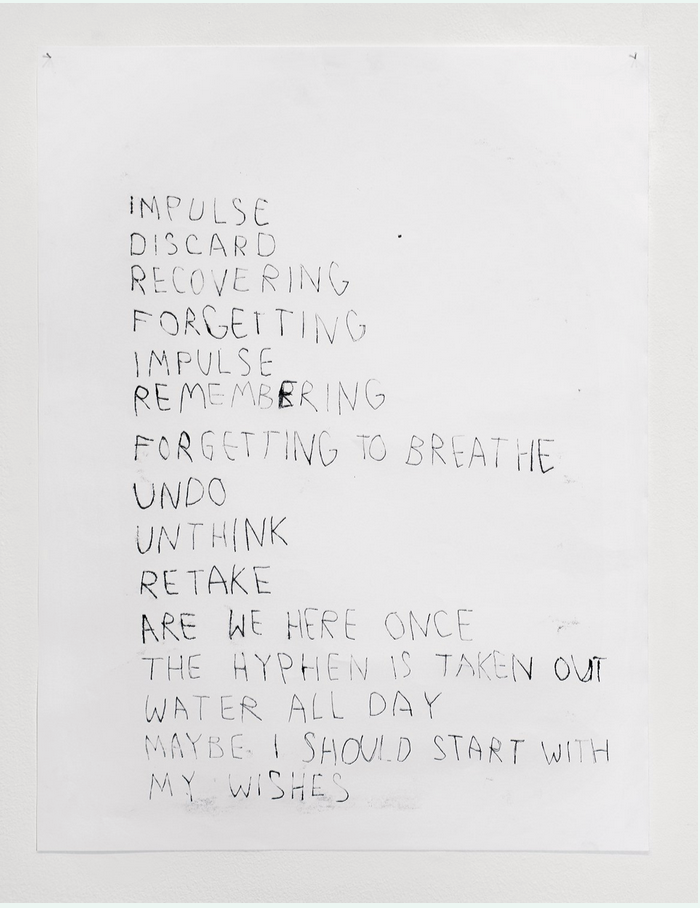 IMPULSE
DISCARD
RECOVERING
FORGETTING
IMPULSE
REMEMBERING
FORGETTING TO BREATHE
UNDO
UNTHINK
RETAKE
ARE WE HERE ONCE
THE HYPHEN IS TAKEN OUT
WATER ALL DAY
MAYBE I SHOULD START WITH
MY WISHES